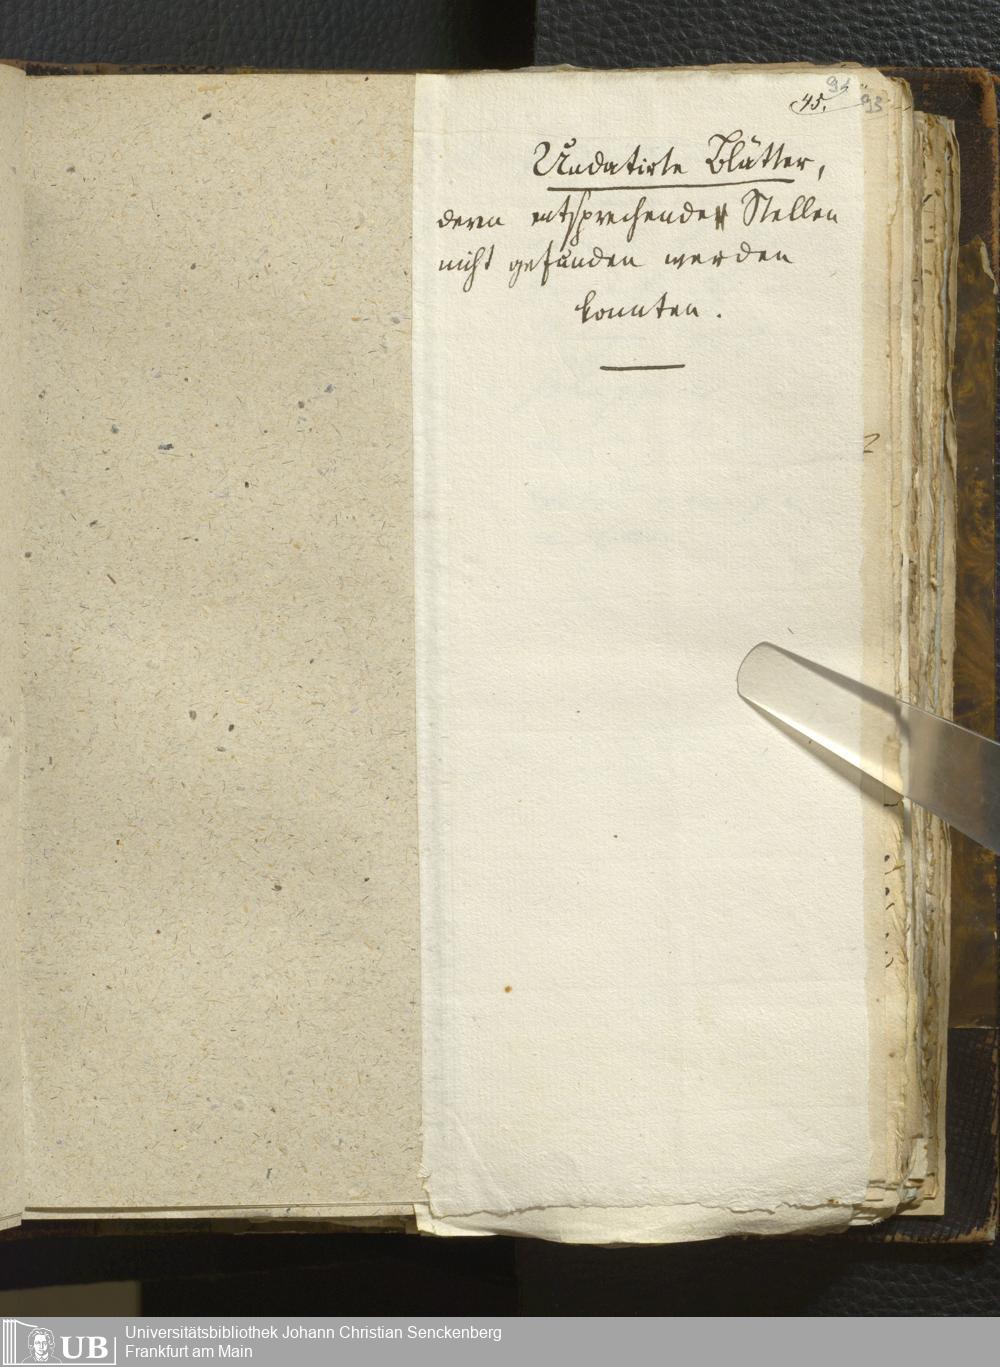 94
45. 93
Undatirte Blätter,
deren entsprechende Stellen
nicht gefunden werden
konnten.
UB
Universitätsbibliothek Johann Christian Senckenberg
Frankfurt am Main